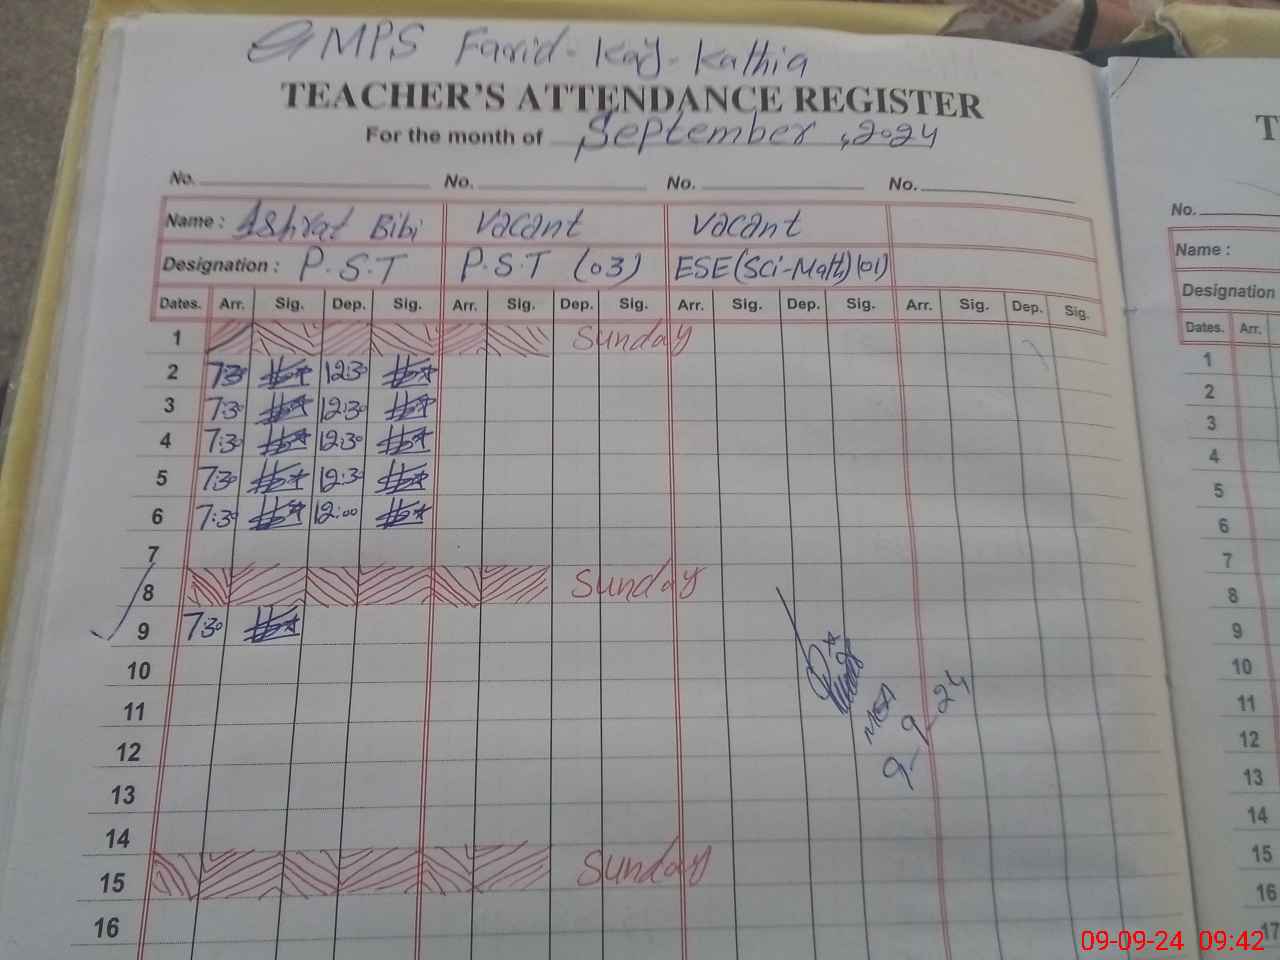 GMPS Farid-Kay-Kathia
TEACHER'S ATTENDANCE REGISTER
For the month of September, 2024
No. No. No. No.
Name: Ashrat Bibi Vacant Vacant
Designation: P.S.T P.S.T (03) ESE(Sci-Math)(01)
Dates. Arr. Sig. Dep. Sig. Arr. Sig. Dep. Sig. Arr. Sig. Dep. Sig. Arr. Sig. Dep. Sig.
1 Sunday
2 7:30 12:30
3 7:30 12:30
4 7:30 12:30
5 7:30 12:30
6 7:30 12:00
7
8 Sunday
9 7:30
10
11
12
13
14
15 Sunday
16
MEA
9-9-24
T
No.
Name:
Designation
Dates. Arr.
1
2
3
4
5
6
7
8
9
10
11
12
13
14
15
16
17
09-09-24 09:42